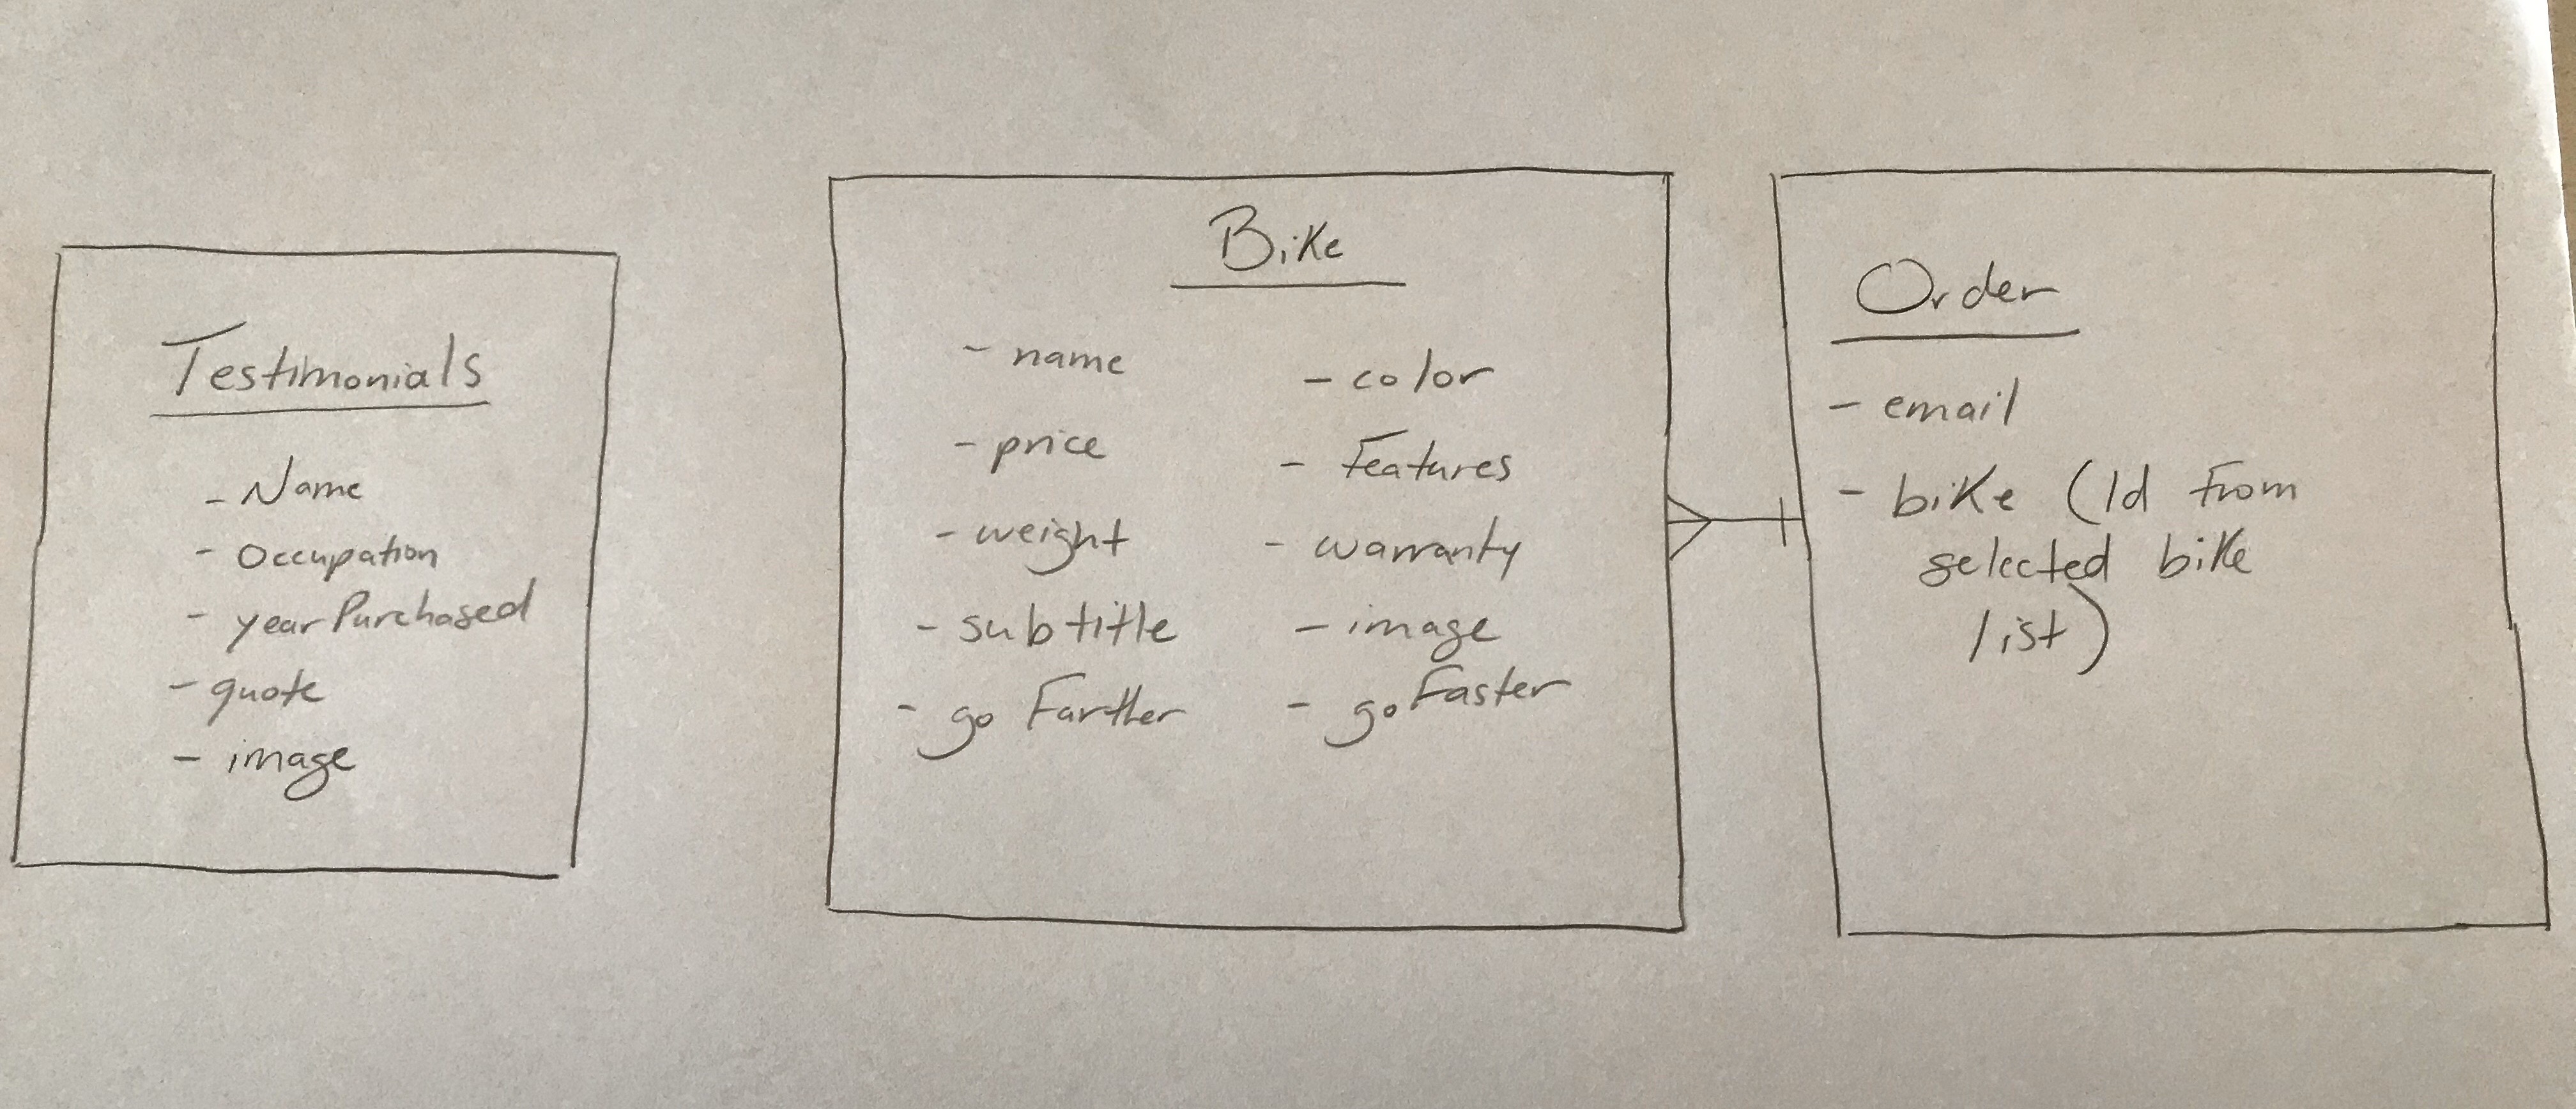 Testimonials
- Name
- Occupation
- yearPurchased
- quote
- image
Bike
- name
- price
- weight
- subtitle
- go Farther
- color
- Features
- warranty
- image
- goFaster
Order
- email
- bike (Id from
selected bike
list)